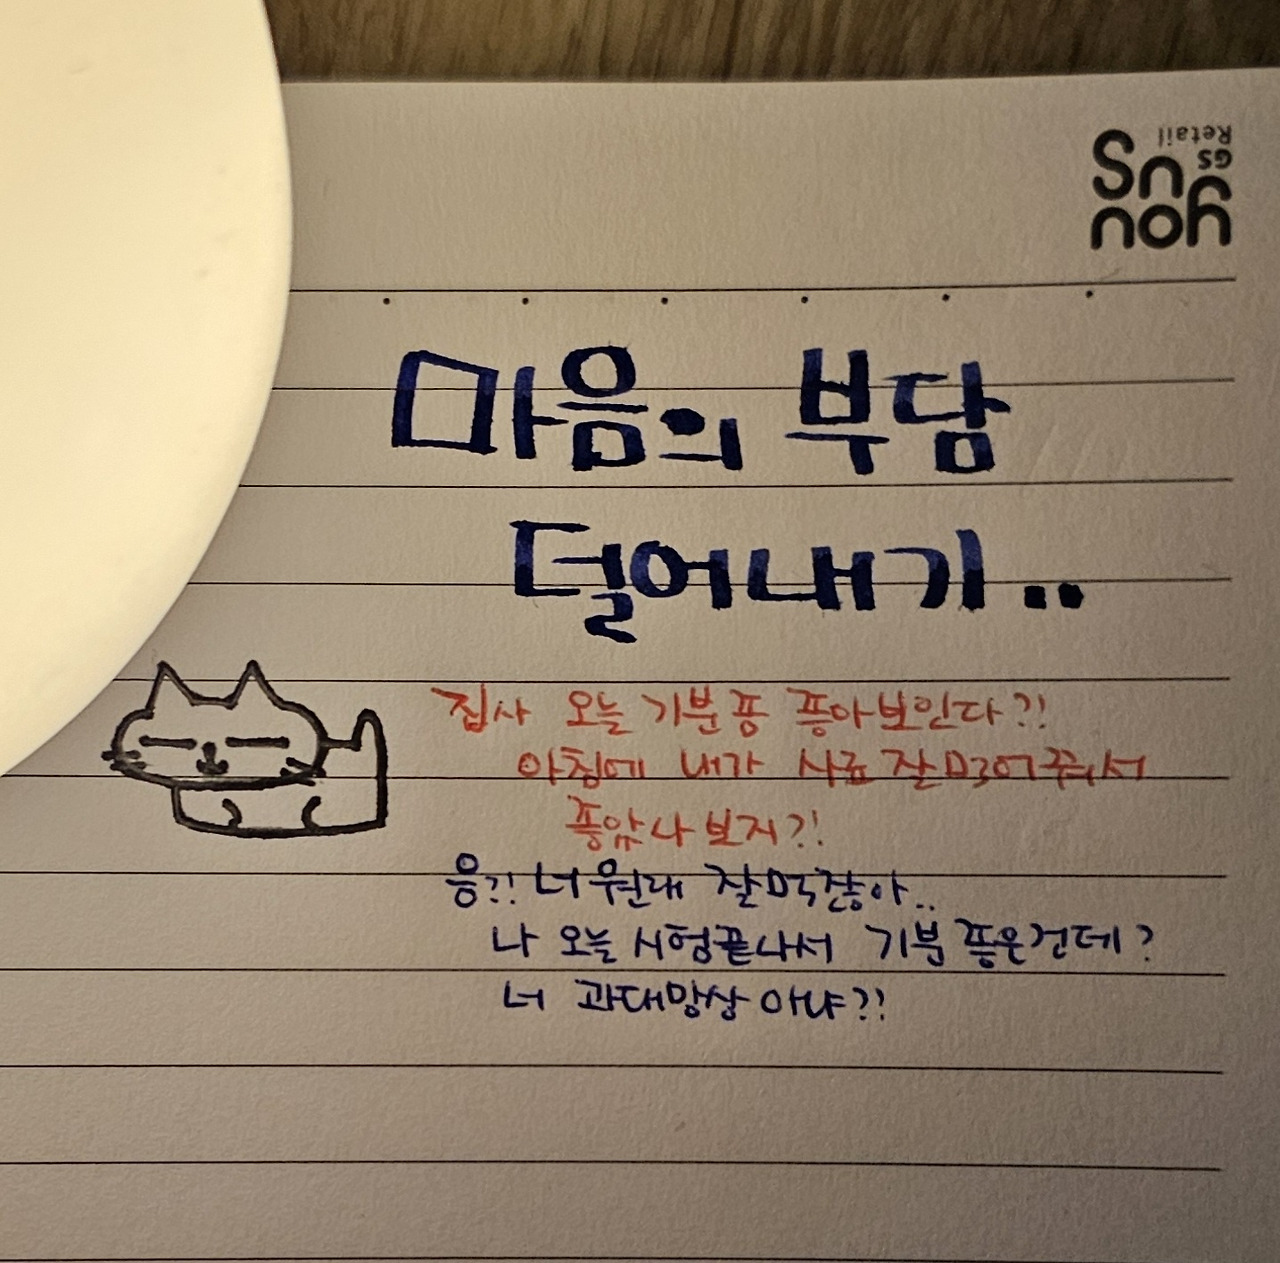 GS Retail
you us
마음의 부담
덜어내기..
집사 오늘 기분 좀 좋아보인다?!
아침에 내가 사료 잘 먹어줘서
좋았나 보지?!
응?! 너 원래 잘먹잖아..
나 오늘 시험끝나서 기분 좋은건데?
너 과대망상 아냐?!